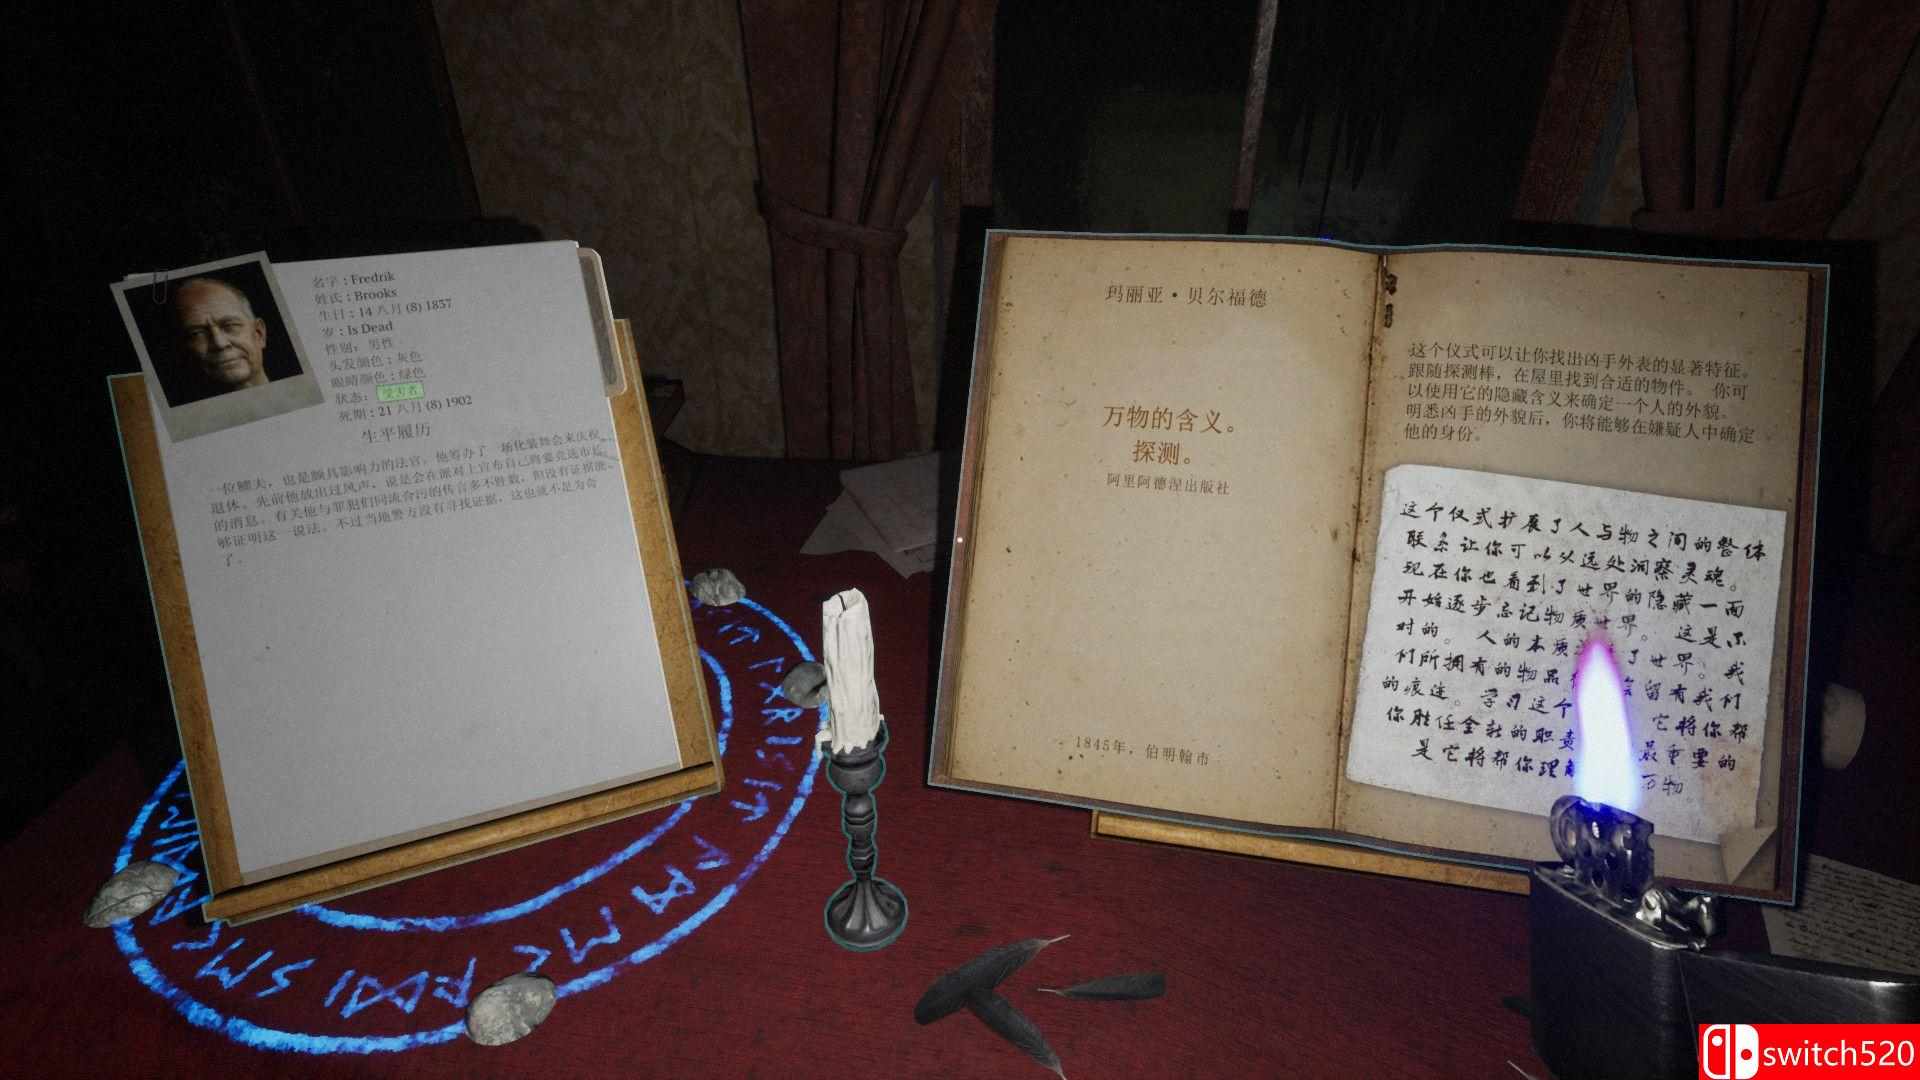 名字：Fredrik
姓氏：Brooks
生日：14 八月 (8) 1837
岁：Is Dead
性别：男性
头发颜色：灰色
眼睛颜色：绿色
状态：受害者
死期：21 八月 (8) 1902
生平履历
一位鳏夫，也是颇具影响力的法官，他筹办了一场化装舞会来庆祝
退休。先前他放出过风声，说是会在派对上宣布自己将要竞选市长
的消息。有关他与罪犯们同流合污的传言多不胜数，但没有证据能
够证明这一说法。不过当地警方没有寻找证据，这也就不足为奇
了。
玛丽亚·贝尔福德
万物的含义。
探测。
阿里阿德涅出版社
1845年，伯明翰市
这个仪式可以让你找出凶手外表的显著特征。
跟随探测棒，在屋里找到合适的物件。 你可
以使用它的隐藏含义来确定一个人的外貌。
明悉凶手的外貌后，你将能够在嫌疑人中确定
他的身份。
这个仪式扩展了人与物之间的整体
联系让你可以从远处洞察灵魂。
现在你也看到了世界的隐藏一面
开始逐步忘记物质世界。 这是不
对的。 人的本质 了世界。我
们所拥有的物品 留有我们
的痕迹。学习这个 它将你帮
你胜任全新的职责 最重要的
是它将帮你理解 万物。
switch520